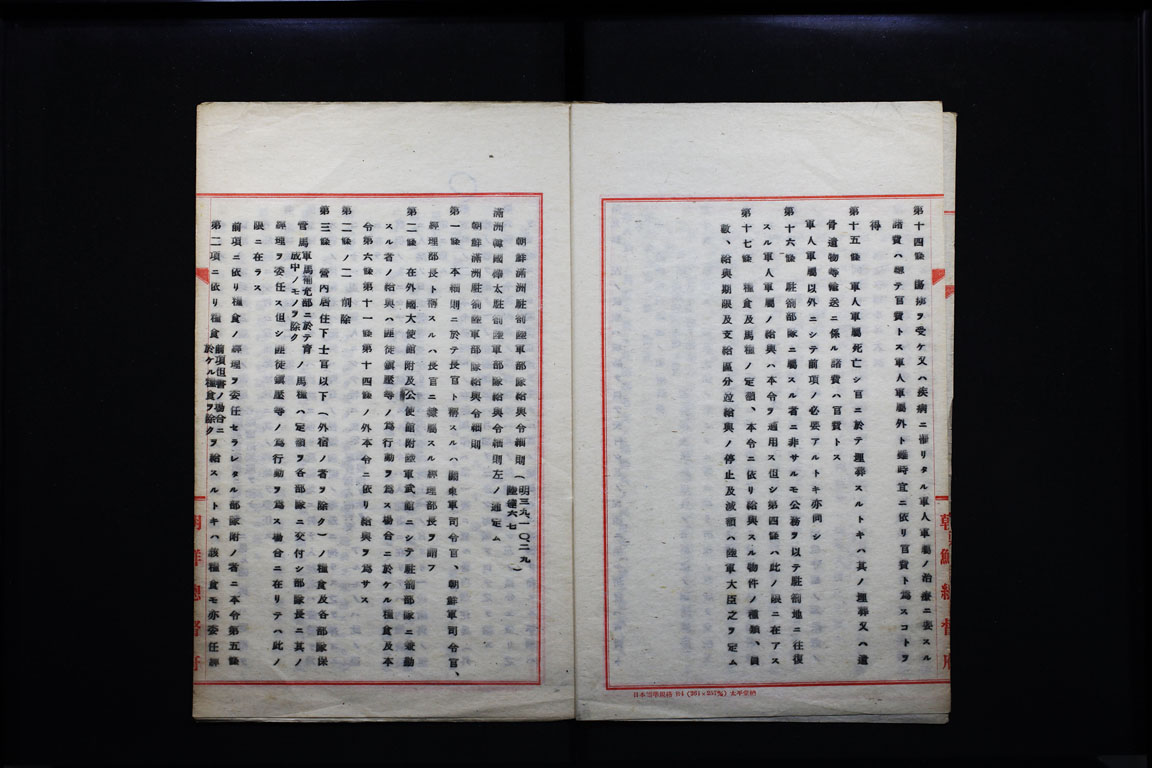 第十四條 傷痍ヲ受ケ又ハ疾病ニ罹リタル軍人軍屬ノ治療ニ要スル
諸費ハ總テ官費トス軍人軍屬外ト雖時宜ニ依リ官費ト爲スコトヲ
得
第十五條 軍人軍屬死亡シ官ニ於テ埋葬スルトキハ其ノ埋葬又ハ遺
骨遺物等輸送ニ係ル諸費ハ官費トス
軍人軍屬以外ニシテ前項ノ必要アルトキ亦同シ
第十六條 駐箚部隊ニ屬スル者ニ非サルモ公務ヲ以テ駐箚地ニ往復
スル軍人軍屬ノ給與ハ本令ヲ適用ス但シ第四條ハ此ノ限ニ在アス
第十七條 糧食及馬糧ノ定額、本令ニ依リ給與スル物件ノ種類、員
數、給與期限及支給區分竝給與ノ停止及減額ハ陸軍大臣之ヲ定ム
日本標準規格 B4 (364×257㎜)
朝鮮總督府
朝鮮滿洲駐箚陸軍部隊給與令細則(明三九、一〇二九 陸達六七)
滿洲韓國樺太駐箚陸軍部隊給與令細則左ノ通定ム
朝鮮滿洲駐箚陸軍部隊給與令細則
第一條 本細則ニ於テ長官ト稱スルハ關東軍司令官、朝鮮軍司令官、
經理部長ト稱スルハ長官ニ隷屬スル經理部長ヲ謂フ
第二條 在外國大使館附及公使館附陸軍武館ニシテ駐箚部隊ニ兼勤
スル者ノ給與ハ匪徒鎭壓等ノ爲行動ヲ爲ス場合ニ於ケル糧食及本
令第六條第十一條第十四條ノ外本令ニ依リ給與ヲ爲サス
第二條ノ二 削除
第三條 營內居住下士官以下(外宿ノ者ヲ除ク)ノ糧食及各部隊保
管馬 軍馬補充部ニ於テ育成中ノモノヲ除ク ノ馬糧ハ定額ヲ各部隊ニ交付シ部隊長ニ其ノ
經理ヲ委任ス但シ匪徒鎭壓等ノ爲行動ヲ爲ス場合ニ在リテハ此ノ
限ニ在ラス
前項ニ依リ糧食ノ經理ヲ委任セラレタル部隊附ノ者ニ本令第五條
第二項ニ依リ糧食 前項但書ノ場合ニ於ケル糧食ヲ除ク ヲ給スルトキハ該糧食モ亦委任經
朝鮮總督府